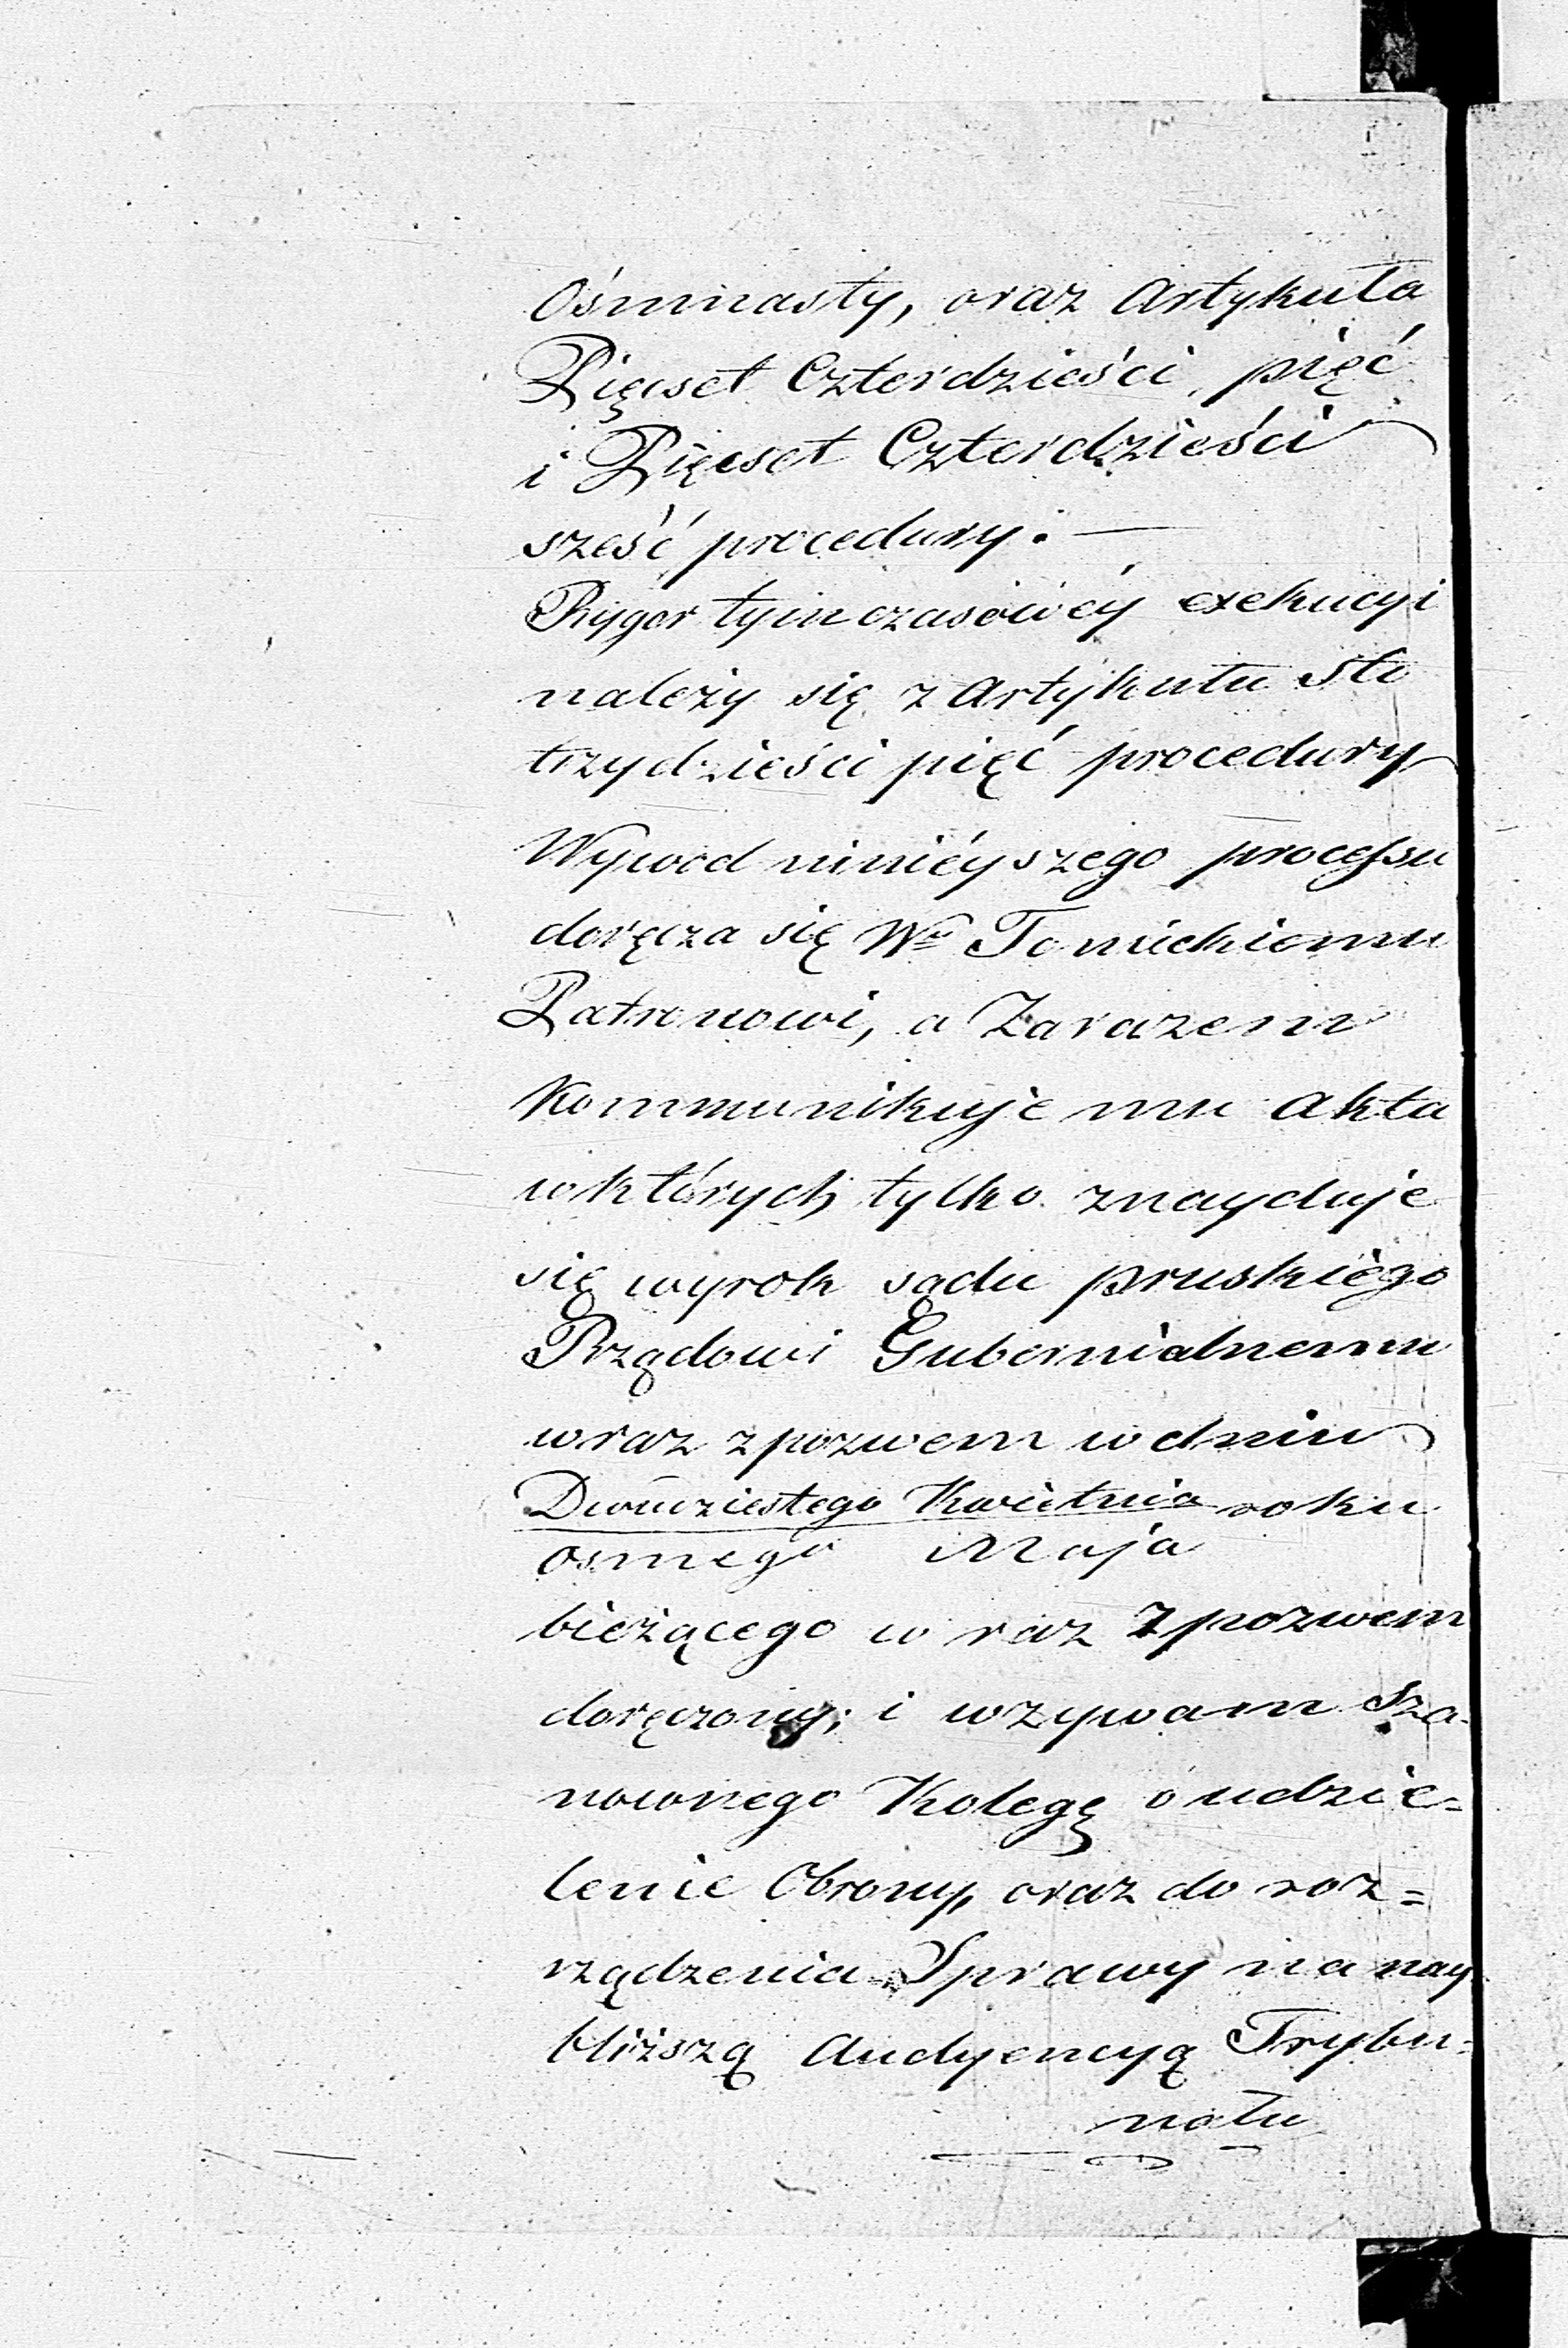 Ośmnasty, oraz Artykuła
Pięcset Czterdzieści pięć
i Pięcset Czterdzieści
sześć procedury. —
Rygor tymczasowéy exekucyi
należy się z Artykułu Sto
trzydzieści pięć procedury
Wywod niniéyszego processu
doręcza się Wu Tomickiemu
Patronowi, a Zarazem
Kommunikuje mu akta
w których tylko znayduje
się wyrok sądu pruskiego
Rządowi Gubernialnemu
wraz z pozwem w dniu
Dwudziestego Kwietnia roku
osmego Maja
bieżącego w raz z pozwem
doręczony; i wzywam Sza-
nownego Kolegę o udzie=
lenie Obrony, oraz do roz=
rządzenia Sprawy na nay
bliższą Audyencyą Trybu=
nału